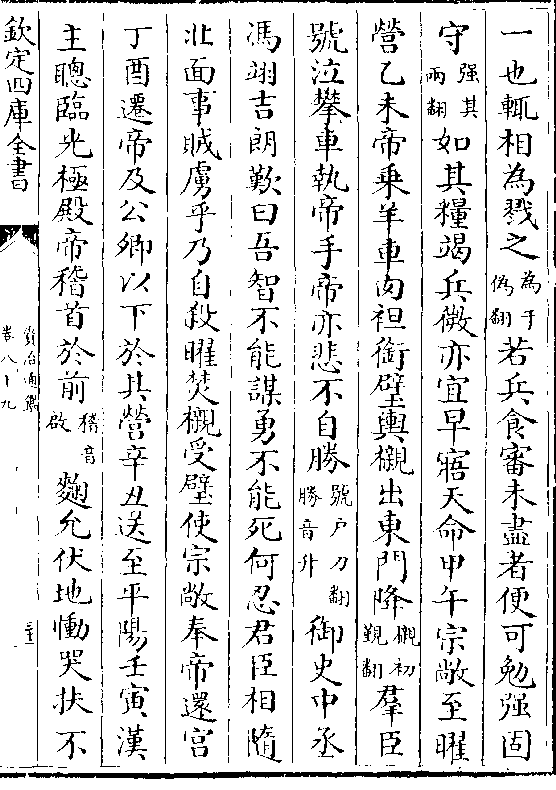 一也輒相為戮之為于偽翻若兵食審未盡者便可勉强固
守强其兩翻如其糧竭兵微亦宜早寤天命甲午宗敞至曜
營乙未帝乗羊車肉袒銜璧輿櫬出東門降櫬初覲翻羣臣
號泣攀車執帝手帝亦悲不自勝號户刀翻勝音升御史中丞
馮翊吉朗歎曰吾智不能謀勇不能死何忍君臣相隨
北面事賊虜乎乃自殺曜焚櫬受璧使宗敞奉帝還宫
丁酉遷帝及公卿以下於其營辛丑送至平陽壬寅漢
主聰臨光極殿帝稽首於前稽音啟麴允伏地慟哭扶不
欽定四庫全書
資治通鑑
卷八十九